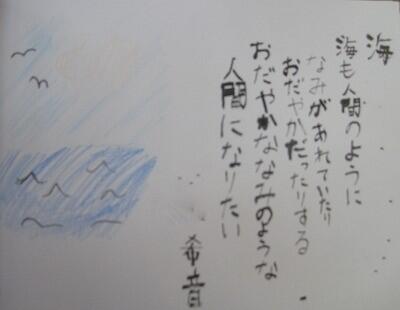 海
海も人間のように
なみがあれていたり
おだやかだったりする
おだやかななみのような
人間になりたい
希音